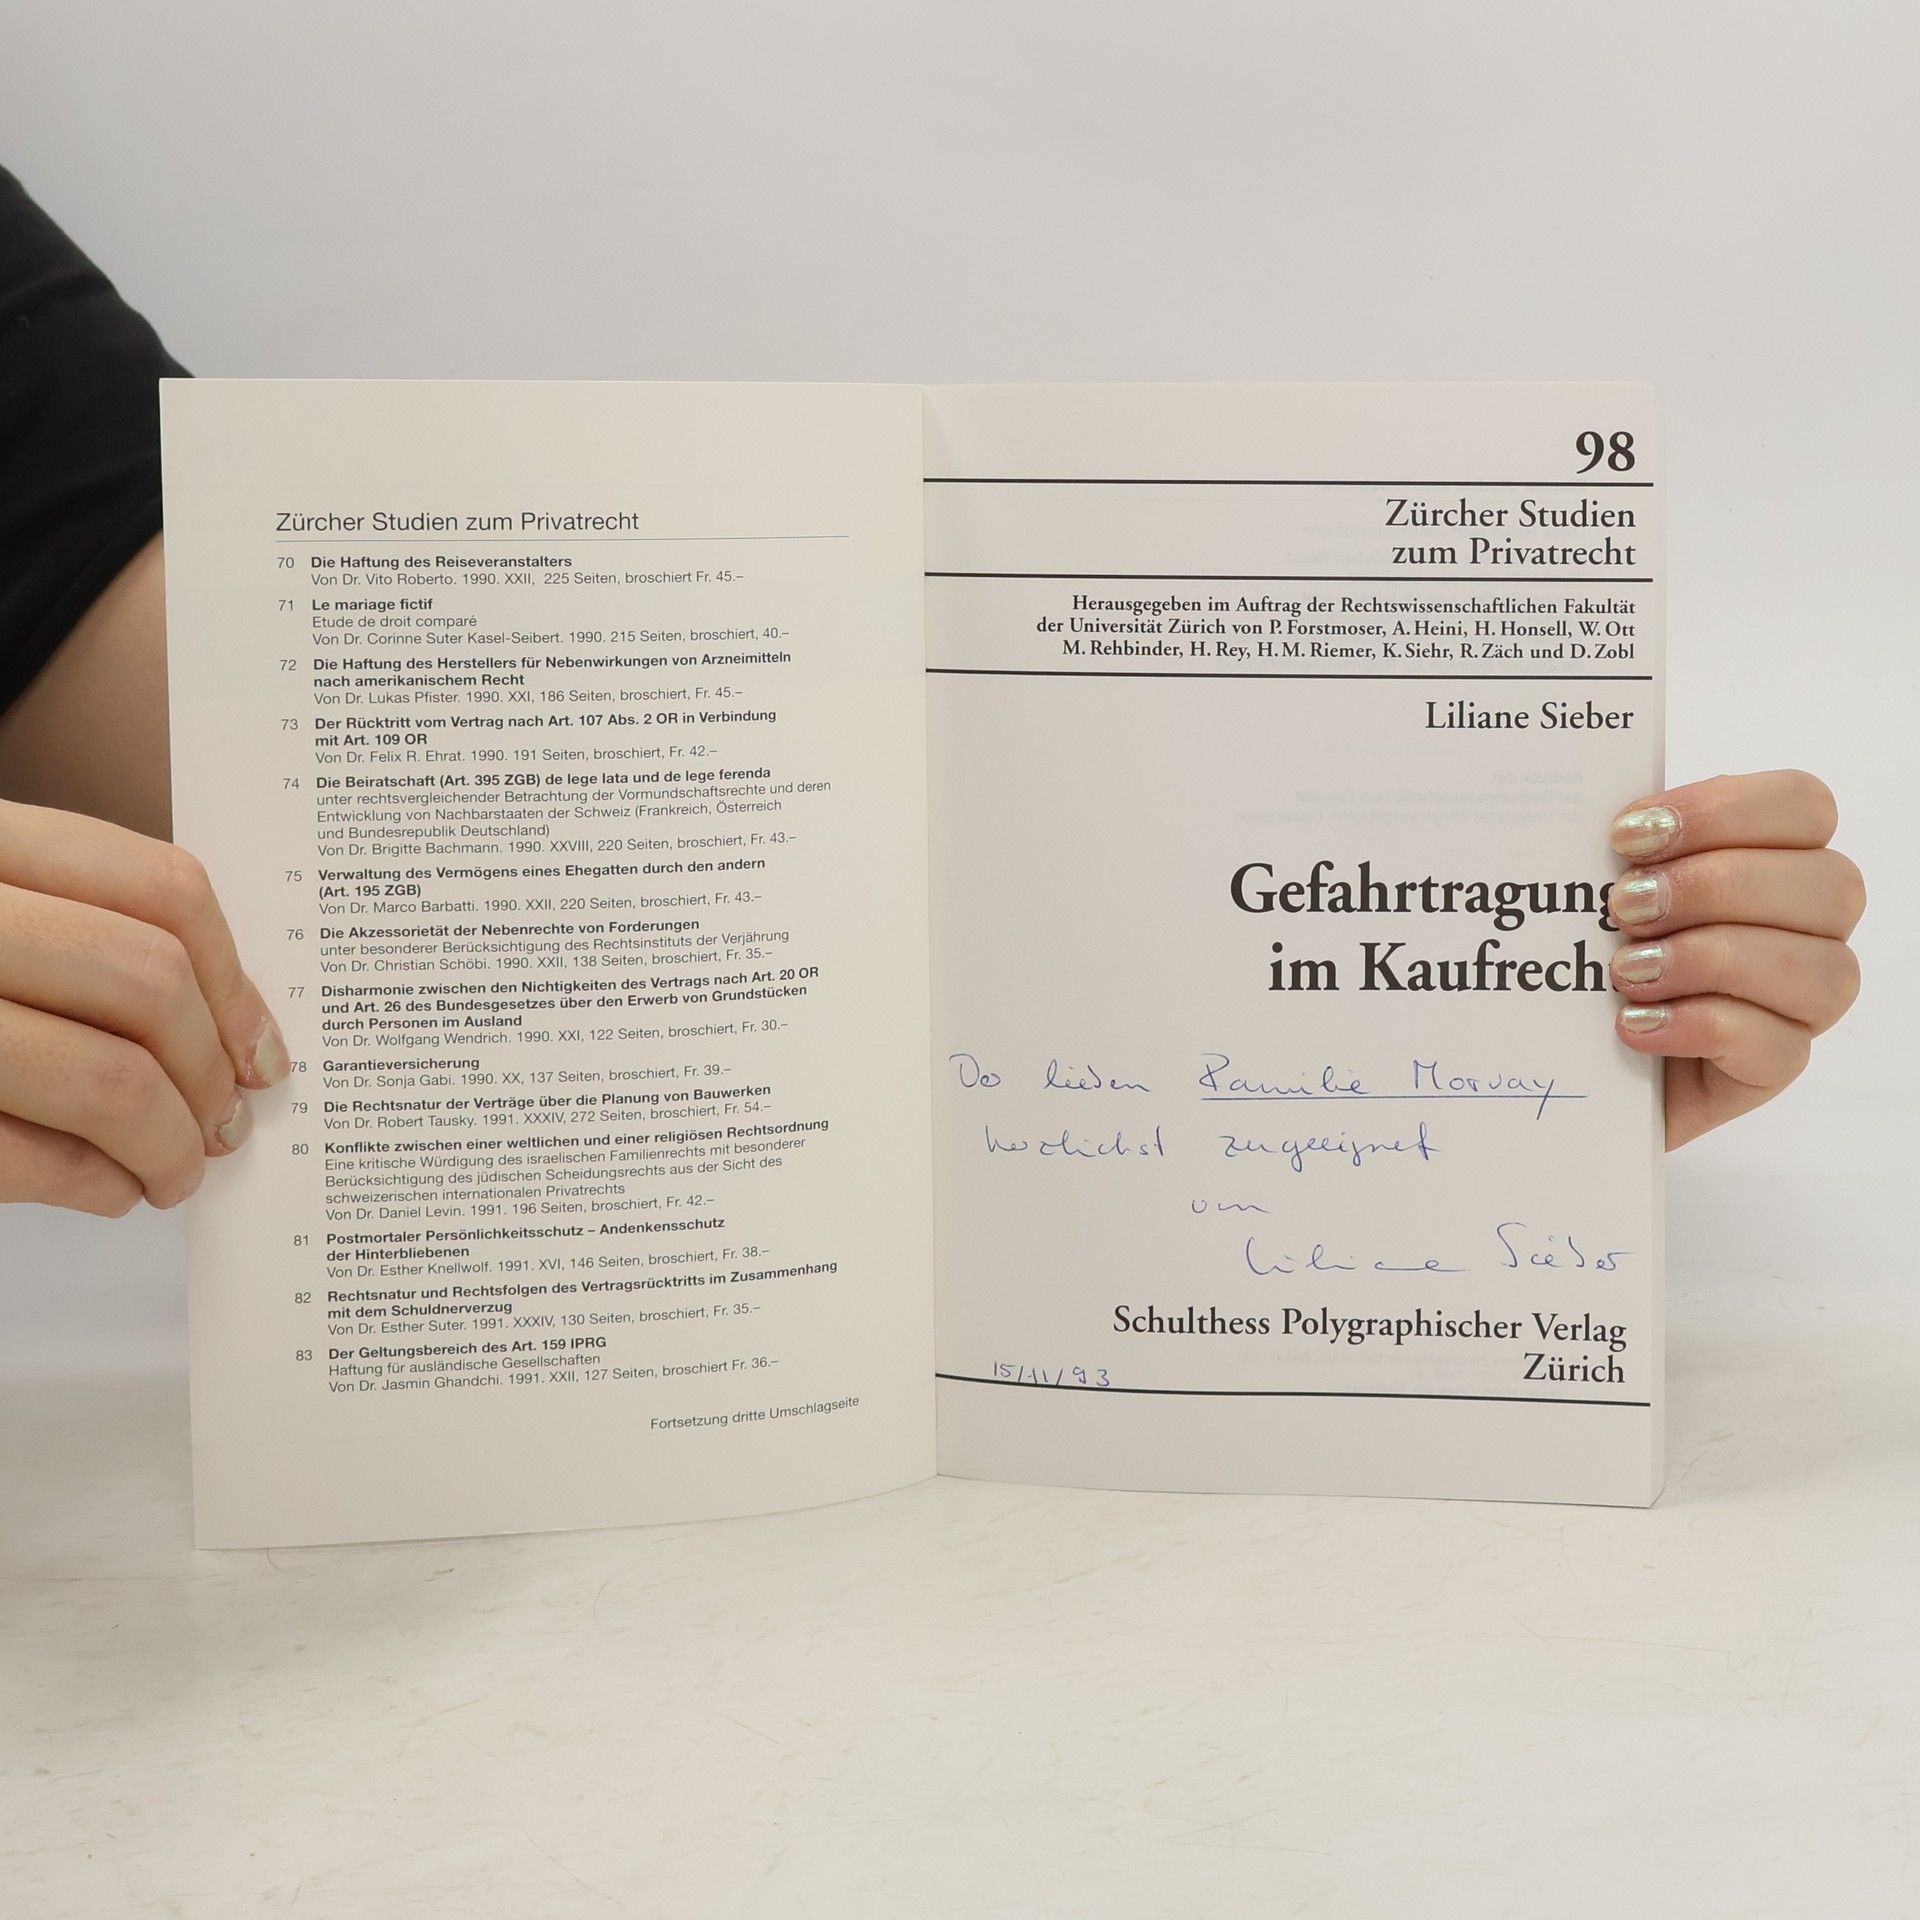 Zürcher Studien zum Privatrecht
70 Die Haftung des Reiseveranstalters
Von Dr. Vito Roberto. 1990. XXII, 225 Seiten, broschiert Fr. 45.–
71 Le mariage fictif
Etude de droit comparé
Von Dr. Corinne Suter Kasel-Seibert. 1990. 215 Seiten, broschiert, 40.–
72 Die Haftung des Herstellers für Nebenwirkungen von Arzneimitteln
nach amerikanischem Recht
Von Dr. Lukas Pfister. 1990. XXI, 186 Seiten, broschiert, Fr. 45.–
73 Der Rücktritt vom Vertrag nach Art. 107 Abs. 2 OR in Verbindung
mit Art. 109 OR
Von Dr. Felix R. Ehrat. 1990. 191 Seiten, broschiert, Fr. 42.–
74 Die Beiratschaft (Art. 395 ZGB) de lege lata und de lege ferenda
unter rechtsvergleichender Betrachtung der Vormundschaftsrechte und deren
Entwicklung von Nachbarstaaten der Schweiz (Frankreich, Österreich
und Bundesrepublik Deutschland)
Von Dr. Brigitte Bachmann. 1990. XXVIII, 220 Seiten, broschiert, Fr. 43.–
75 Verwaltung des Vermögens eines Ehegatten durch den andern
(Art. 195 ZGB)
Von Dr. Marco Barbatti. 1990. XXII, 220 Seiten, broschiert, Fr. 43.–
76 Die Akzessorietät der Nebenrechte von Forderungen
unter besonderer Berücksichtigung des Rechtsinstituts der Verjährung
Von Dr. Christian Schöbi. 1990. XXII, 138 Seiten, broschiert, Fr. 35.–
77 Disharmonie zwischen den Nichtigkeiten des Vertrags nach Art. 20 OR
und Art. 26 des Bundesgesetzes über den Erwerb von Grundstücken
durch Personen im Ausland
Von Dr. Wolfgang Wendrich. 1990. XXI, 122 Seiten, broschiert, Fr. 30.–
78 Garantieversicherung
Von Dr. Sonja Gabi. 1990. XX, 137 Seiten, broschiert, Fr. 39.–
79 Die Rechtsnatur der Verträge über die Planung von Bauwerken
Von Dr. Robert Tausky. 1991. XXXIV, 272 Seiten, broschiert, Fr. 54.–
80 Konflikte zwischen einer weltlichen und einer religiösen Rechtsordnung
Eine kritische Würdigung des israelischen Familienrechts mit besonderer
Berücksichtigung des jüdischen Scheidungsrechts aus der Sicht des
schweizerischen internationalen Privatrechts
Von Dr. Daniel Levin. 1991. 196 Seiten, broschiert, Fr. 42.–
81 Postmortaler Persönlichkeitsschutz – Andenkensschutz
der Hinterbliebenen
Von Dr. Esther Knellwolf. 1991. XVI, 146 Seiten, broschiert, Fr. 38.–
82 Rechtsnatur und Rechtsfolgen des Vertragsrücktritts im Zusammenhang
mit dem Schuldnerverzug
Von Dr. Esther Suter. 1991. XXXIV, 130 Seiten, broschiert, Fr. 35.–
83 Der Geltungsbereich des Art. 159 IPRG
Haftung für ausländische Gesellschaften
Von Dr. Jasmin Ghandchi. 1991. XXII, 127 Seiten, broschiert Fr. 36.–
Fortsetzung dritte Umschlagseite
98
Zürcher Studien
zum Privatrecht
Herausgegeben im Auftrag der Rechtswissenschaftlichen Fakultät
der Universität Zürich von P. Forstmoser, A. Heini, H. Honsell, W. Ott
M. Rehbinder, H. Rey, H. M. Riemer, K. Siehr, R. Zäch und D. Zobl
Liliane Sieber
Gefahrtragung
im Kaufrecht
lieben Familie Morvay
herzlichst zugeeignet
von
Liliane Sieber
Schulthess Polygraphischer Verlag
Zürich
15/11/93